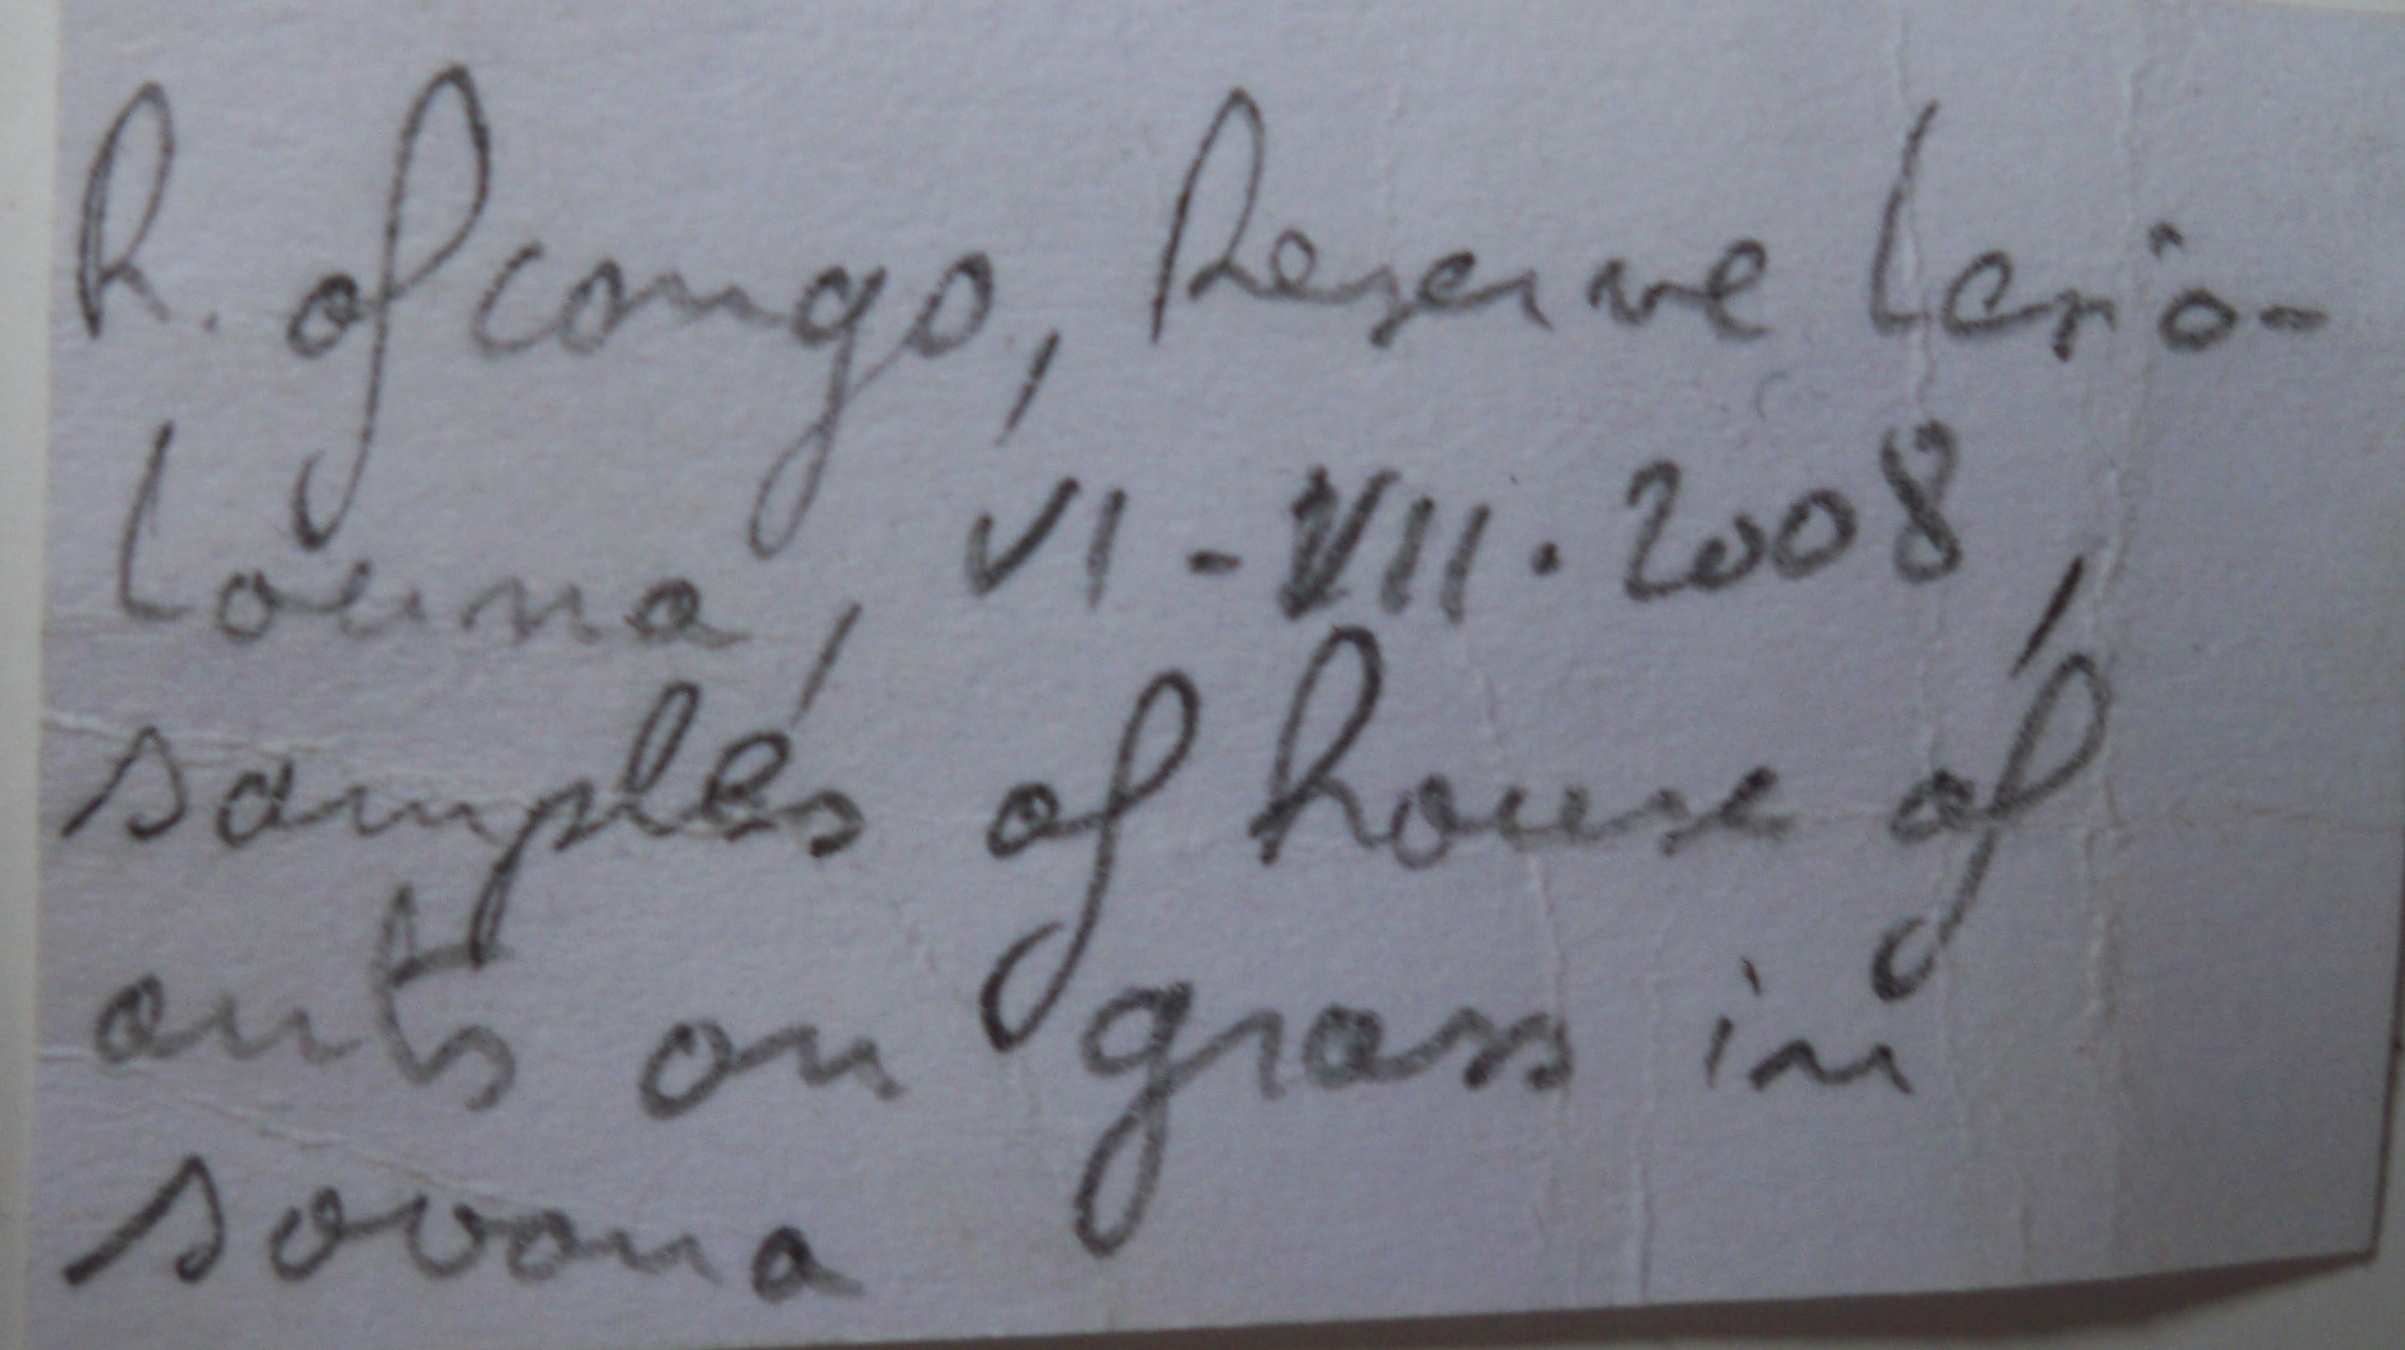 R. of congo, Reserve Lesio-
Louna, VI-VII.2008,
samples of house of
ants on grass in
savana